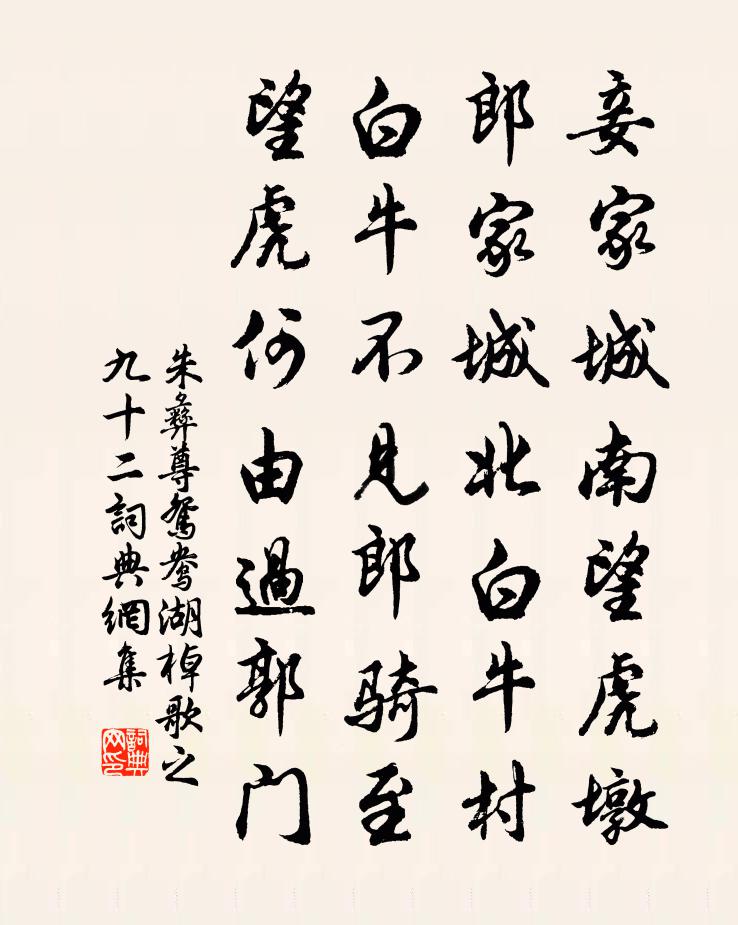 妾家城南望虎墩
郎家城北白牛村
白牛不見郎騎至
望虎何由過郭门
朱彝尊鴛鴦湖棹歌之
九十二詞典網集
詞典网印